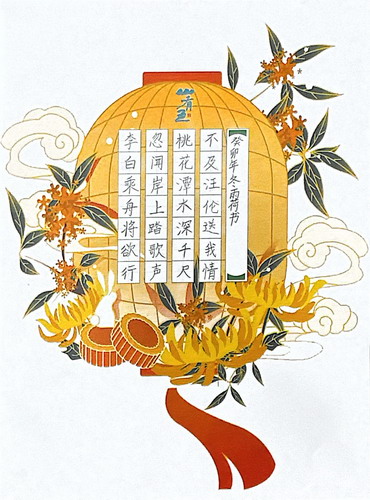 李白乘舟将欲行
忽闻岸上踏歌声
桃花潭水深千尺
不及汪伦送我情
癸卯年冬雨荷书